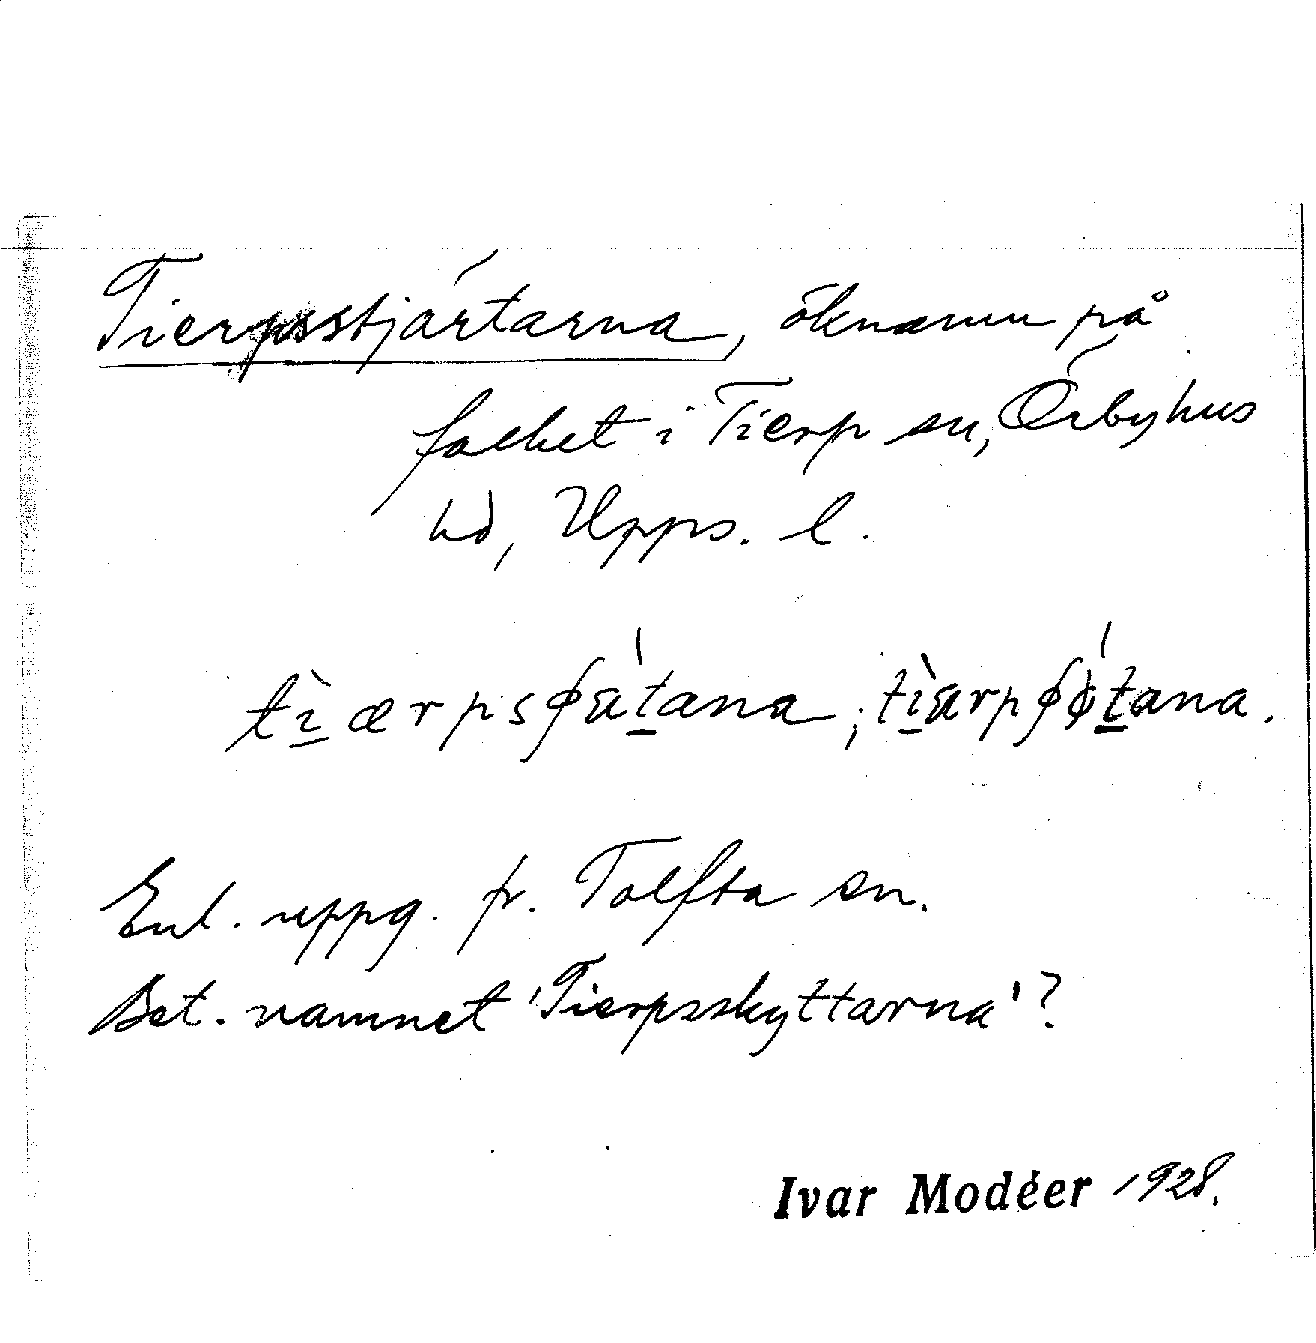 Tierpsstjärtarna, öknamn på
folket i Tierp sn, Örbyhus
hd, Upps. l.
tìærpsʃätana; tìärpʃǿtana.
Enl. uppg. fr. Tolfta sn.
Bet. namnet 'Tierpsskyttarna'?
Ivar Modéer 1928.